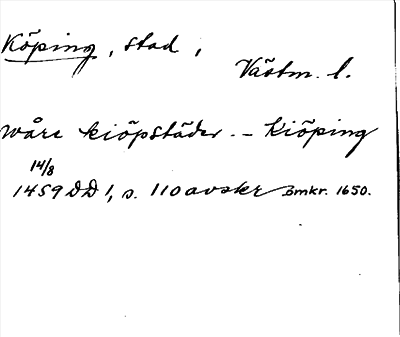 Köping, stad,
Västm. l.
wåre kiöpstäder. - Kiöping
14/8
1459 DD 1, s. 110 avskr omkr. 1650.